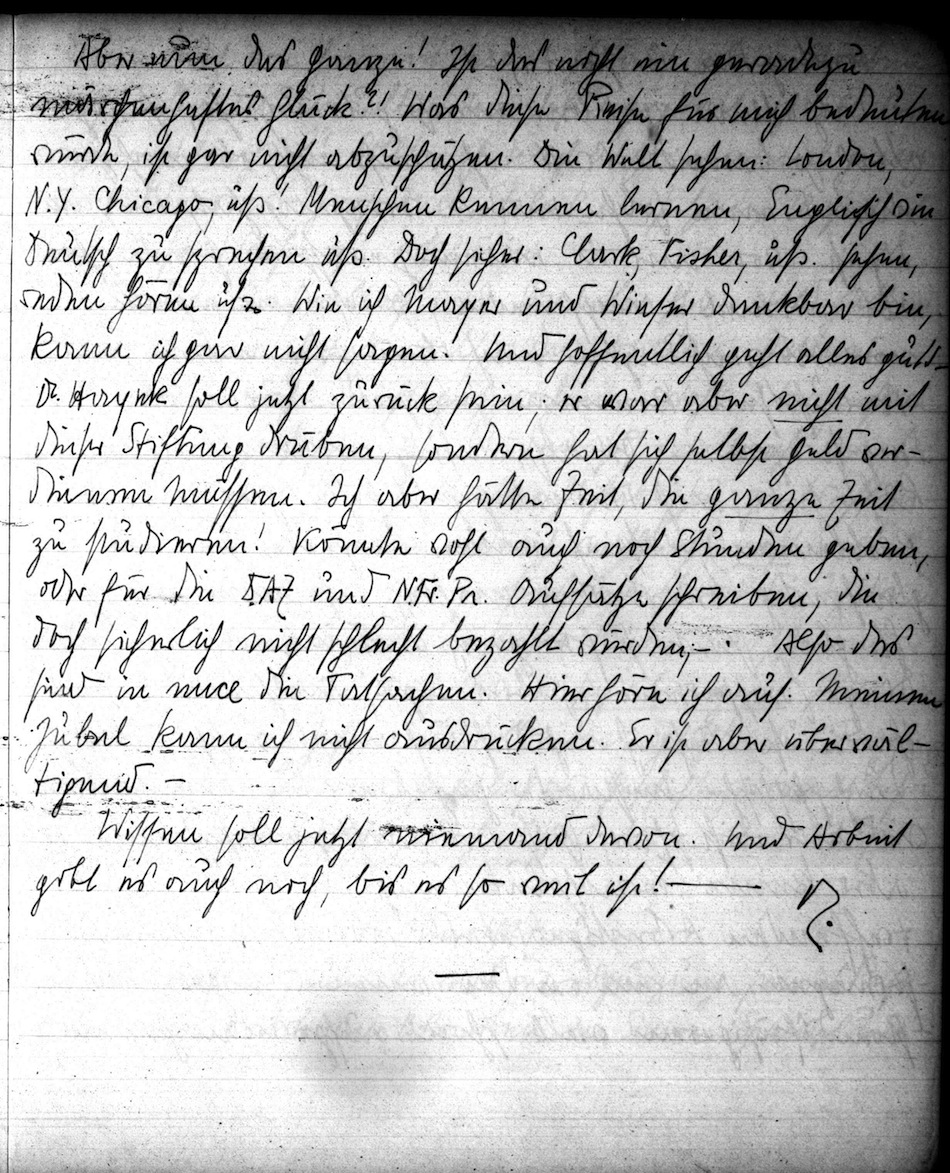 Aber nun das ganze! Ist das nicht ein geradezu
märchenhaftes Glück?! Was diese Reise für mich bedeuten
würde, ist gar nicht abzuschätzen. Die Welt sehen: London,
N.Y. Chicago, usf! Menschen kennen lernen, Englisch wie
Deutsch zu sprechen usf. Doch sicher: Clark, Fisher, usf. sehen,
reden hören usf. Wie ich Mayer und Wieser dankbar bin,
kann ich gar nicht sagen! Und hoffentlich geht alles gut! –
Dr. Hayek soll jetzt zurück sein; er war aber nicht mit
dieser Stiftung drüben, sondern hat sich selbst Geld ver-
dienen müssen. Ich aber hätte Zeit, die ganze Zeit
zu studieren! Könnte wohl auch noch Stunden geben,
oder für die DAZ und N.Fr.Pr. Aufsätze schreiben, die
doch sicherlich nicht schlecht bezahlt würden, –. Also das
sind in nuce die Tatsachen. Hier höre ich auf. Meinen
Jubel kann ich nicht ausdrücken. Er ist aber überwäl-
tigend. –
Wissen soll jetzt niemand davon. Und Arbeit
gibt es auch noch, bis es so weit ist! —